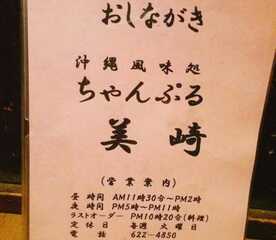 おしながき
沖縄風味処
ちゃんぷる
美崎
(営業案内)
昼 時間 AM11時30分~PM2時
夜 時間 PM5時~PM11時
ラストオーダー PM10時20台(料理)
定休日 毎週 火曜日
電話 622-4850